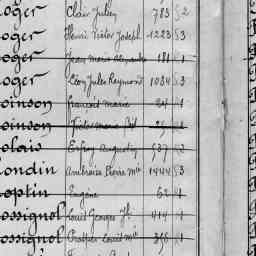 oger Clair Julien 783 § 2
oger Henri Victor Joseph 1223 § 3
oger Jean Marie Alexandre 181 § 1
oger Léon Jules Raymond 1084 § 3
oinson François Marie
oinson Victor Marie
olais 537 § 2
ondin Ambroise Pierre Mie 1444 § 3
optin Eugène 62 § 1
ossignol Louis Georges 414 § 1
ossignol Louis Mie